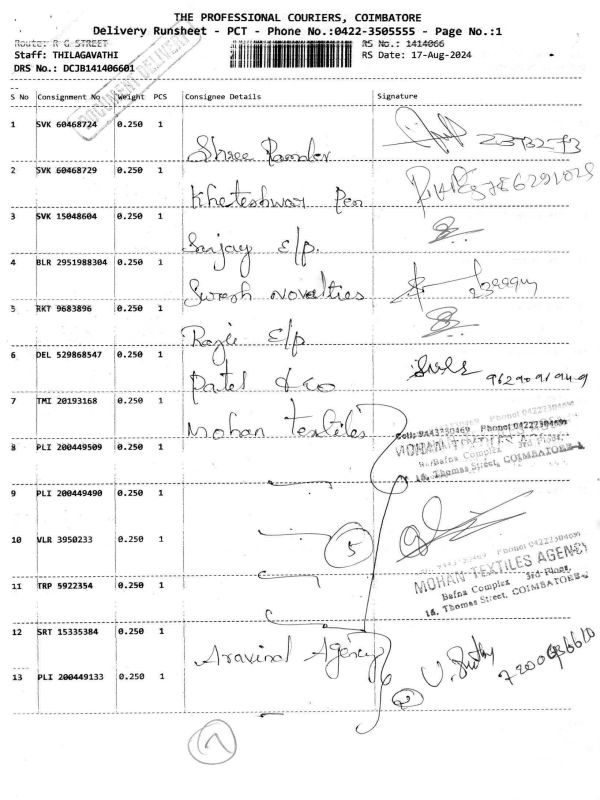 THE PROFESSIONAL COURIERS, COIMBATORE
Delivery Runsheet - PCT - Phone No.:0422-3505555 - Page No.:1
Route: R G STREET
RS No.: 1414066
Staff: THILAGAVATHI
RS Date: 17-Aug-2024
DRS No.: DCJB141406601
DOCUMENT DELIVERY
S No Consignment No Weight PCS Consignee Details Signature
1 SVK 60468724 0.250 1
Shree
2 SVK 60468729 0.250 1
Kheteshwar Pen
3 SVK 15048604 0.250 1
Sanjay E/p.
4 BLR 2951988304 0.250 1
Suresh Novelties
5 RKT 9683896 0.250 1
Rajee E/p
6 DEL 529868547 0.250 1
Patel & co
7 TMI 20193168 0.250 1
Mohan Textiles
Cell: 9443250469 Phone: 04222304699
MOHAN TEXTILES AGENCY
Bafna Complex 3rd Floor,
18, Thomas Street, COIMBATORE-1
8 PLI 200449509 0.250 1
9 PLI 200449490 0.250 1
10 VLR 3950233 0.250 1
5
MOHAN TEXTILES AGENCY
Bafna Complex 3rd Floor,
18, Thomas Street, COIMBATORE-1
11 TRP 5922354 0.250 1
12 SRT 15335384 0.250 1
Aravind Agency
13 PLI 200449133 0.250 1
2